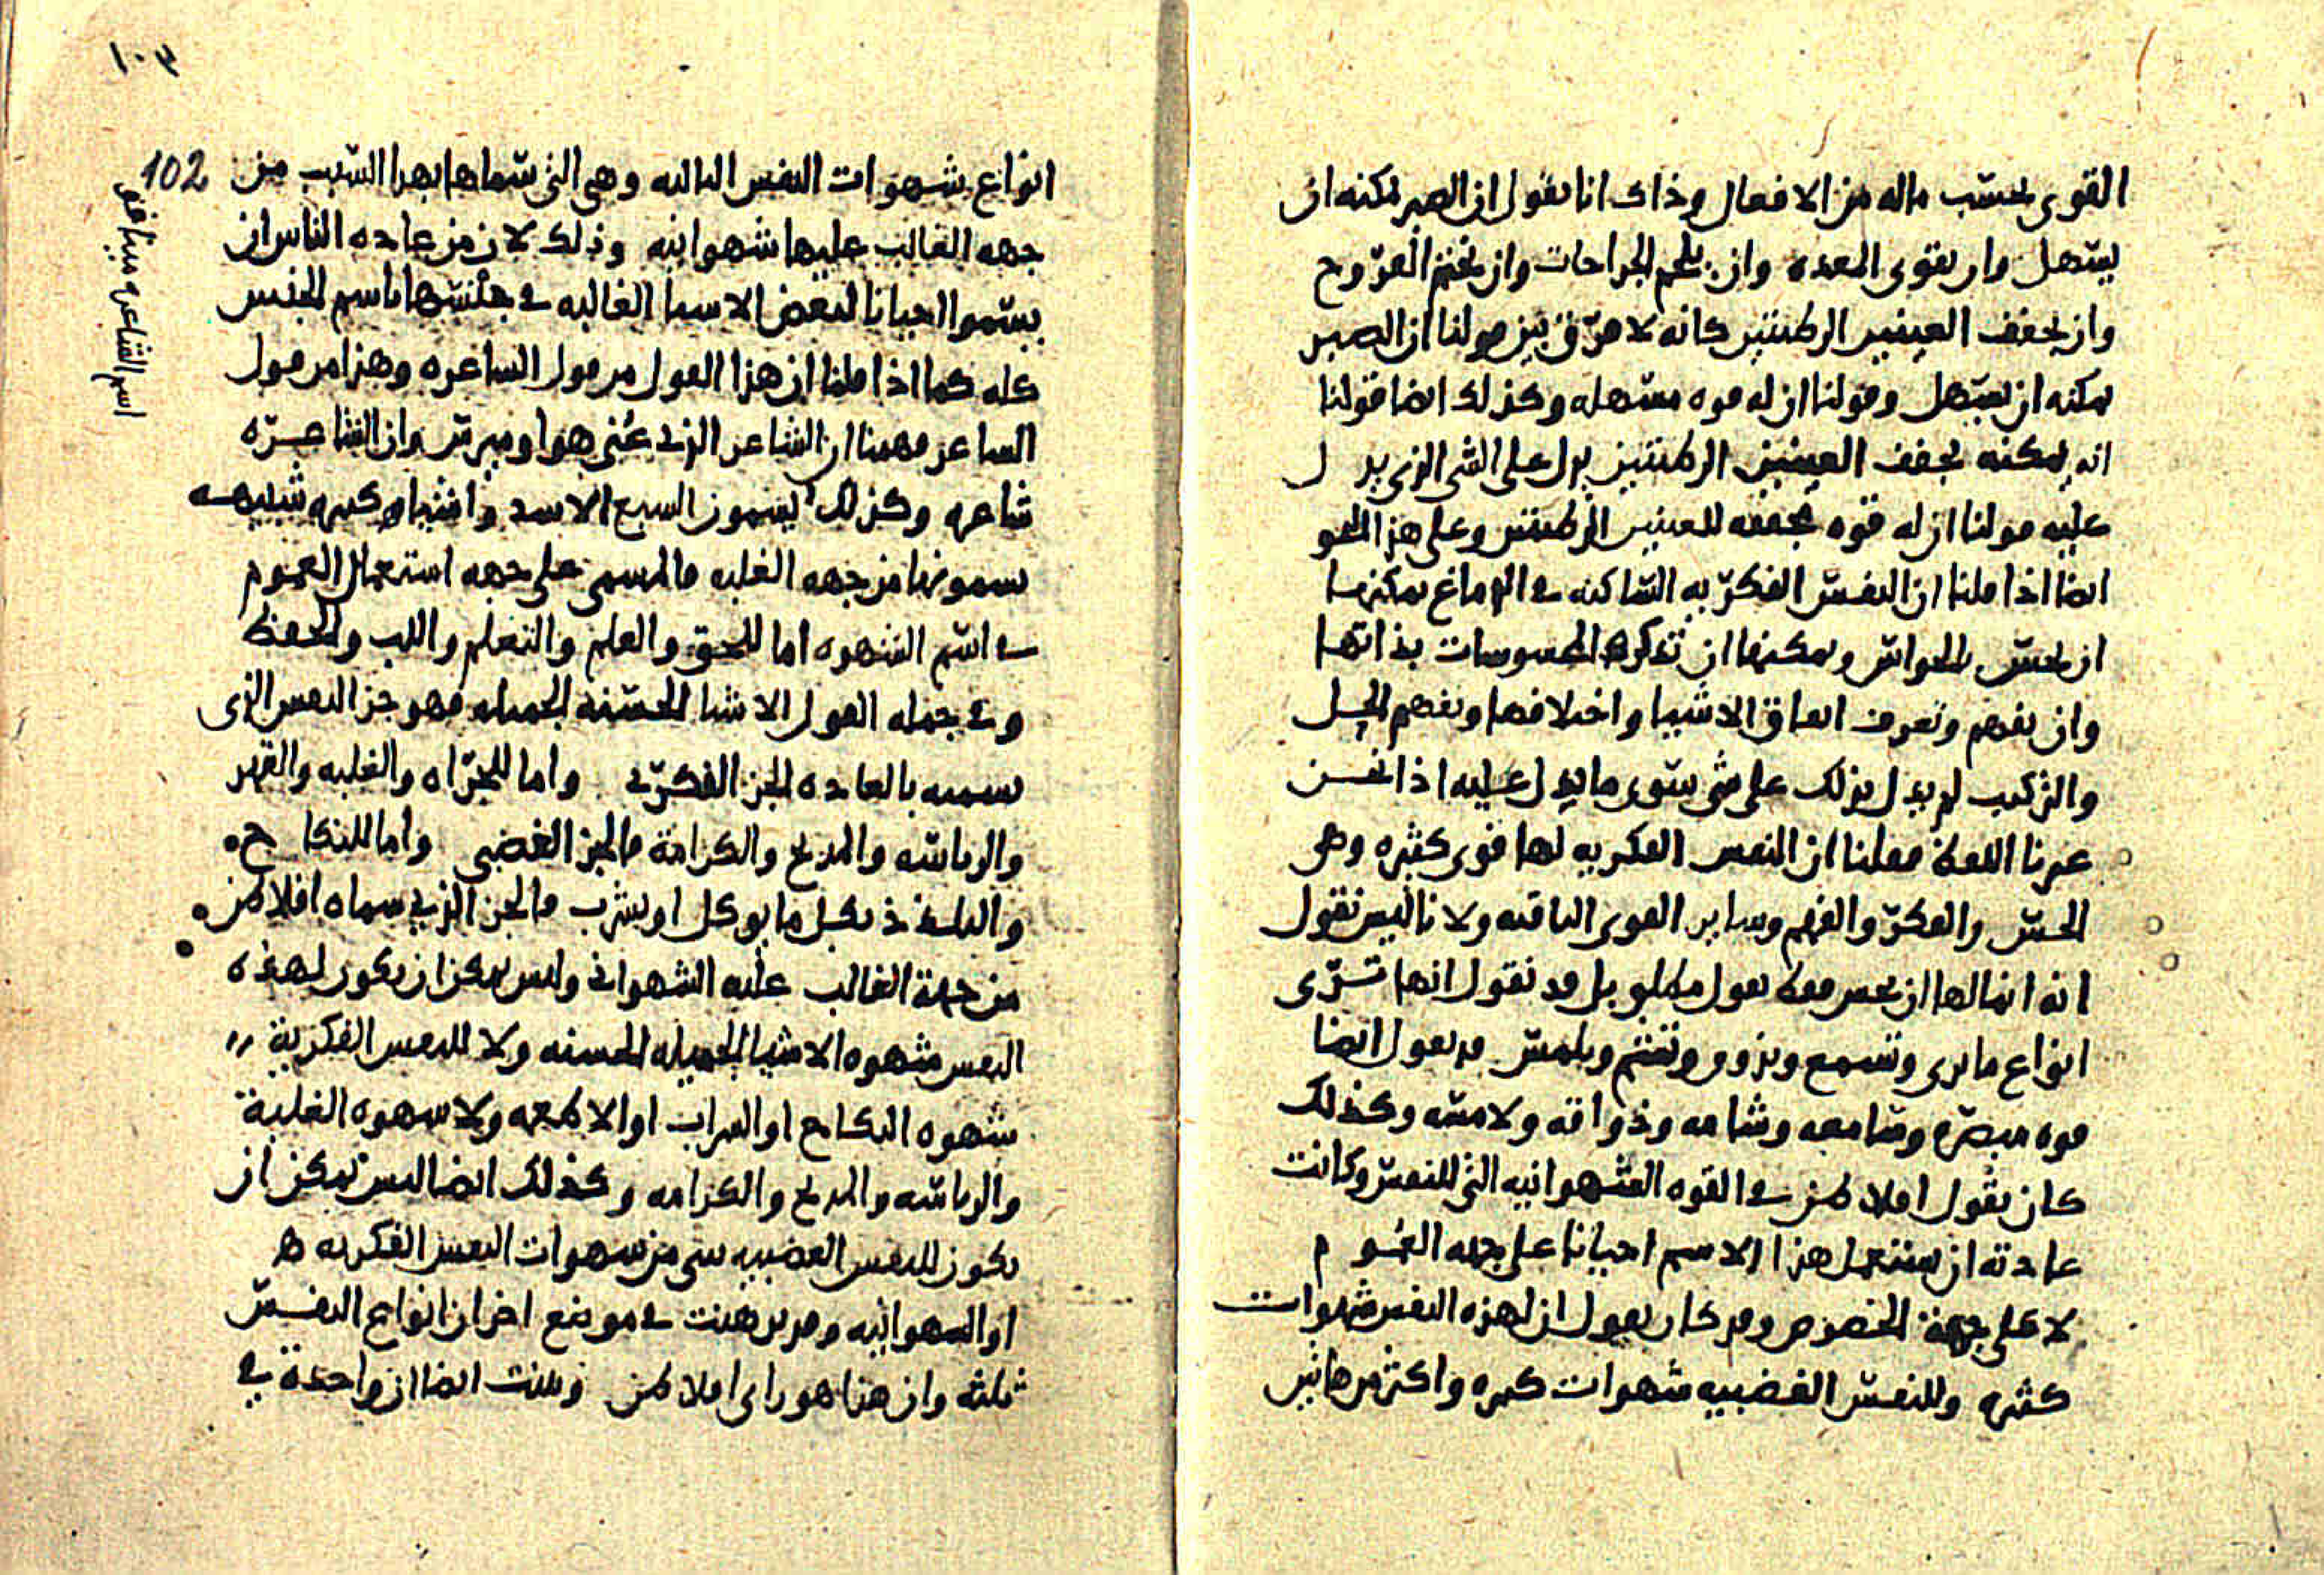 القوى بحسب ماله من الافعال وذاك انا نقول ان الصبر يمكنه ان
يسهل وان يقوى المعده وان يلحم الجراحات وان يختم القروح
وان يجفف العينين الرطبتين كانه لا فرق بين قولنا ان الصبر
يمكنه ان يسهل وقولنا ان له قوه مسهله وكذلك ايضا قولنا
انه يمكنه تجفف العينين الرطبتين يدل على الشى الذى يدل
عليه قولنا ان له قوه مجففه للعينين الرطبتين وعلى هذا النحو
ايضا اذا قلنا ان النفس الفكريه الساكنه فى الدماغ يمكنها
ان تحس بالحواس ويمكنها ان تتذكر المحسوسات بذاتها
وان تفهم وتعرف اتفاق الاشيا واختلافها وتفهم الحل
والتركيب لم يدل بذلك على شى سوى ما يدل عليه اذا نحن
غيرنا اللفظ فقلنا ان النفس الفكريه لها قوى كثيره وهى
الحس والفكر والفهم وساير القوى الباقيه ولانا ليس نقول
انه انما لها ان تحس فقط بقول مطلق بل قد نقول انها ترى
انواع ما يرى وتسمع وتذوق وتشم وتلمس قد نقول ايضا
قوه مبصره وسامعه وشامه وذواقه ولامسه وكذلك
كان يقول افلاطن فى القوه الشهوانيه التى للنفس وكانت
عادته ان يستعمل هذا الاسم احيانا على جهه العموم
لا على جهة الخصوص وقد كان يقول ان لهذه النفس شهوات
كثيره وللنفس الغضبيه شهوات كثيره واكثر من هاتين
١٠٣
102
انواع شهوات النفس الثالثه وهى التى سماها بهذا السبب من
جهه الغالب عليها شهوانيه وذلك لان من عاده الناس ان
يسموا احيانا لبعض الاسما الغالبه فى جنسها باسم الجنس
كله كما اذا قلنا ان هذا القول من قول الشاعره وهذا من قول
الشاعر فهمنا ان الشاعر الذى عنى هو اوميرس وان الشاعره
شاعره وكذلك يسمون السبع الاسد واشيا كثيره شبيهه
يسمونها من جهه الغلبه فالمسمى على جهه استعمال العموم
فى اسم الشهوه اما للحق والعلم والتعلم واللب والحفظ
وفى جمله القول الاشيا الحسنه الجميله فهو جز النفس الذى
نسميه بالعاده الجز الفكرى واما للجراه والغلبه والقهر
والرياسه والمديح والكرامة فالجز الغضبى واما للنكاح
والتلذذ بكل ما يوكل او يشرب فالجز الذى سماه افلاطن
من جهة الغالب عليه الشهوانى وليس يمكن ان يكون لهذه
النفس شهوه الاشيا الجميله الحسنه ولا للنفس الفكرية
شهوه النكاح او الشراب او الاطعمه ولا شهوه الغلبة
والرياسه والمديح والكرامه وكذلك ايضا ليس يمكن ان
يكون للنفس الغضبيه شى من شهوات النفس الفكريه
او الشهوانيه وقد برهنت فى موضع اخر ان انواع النفس
ثلثه وان هذا هو راى افلاطن وبينت ايضا ان واحدة فى
اسم الشاعر